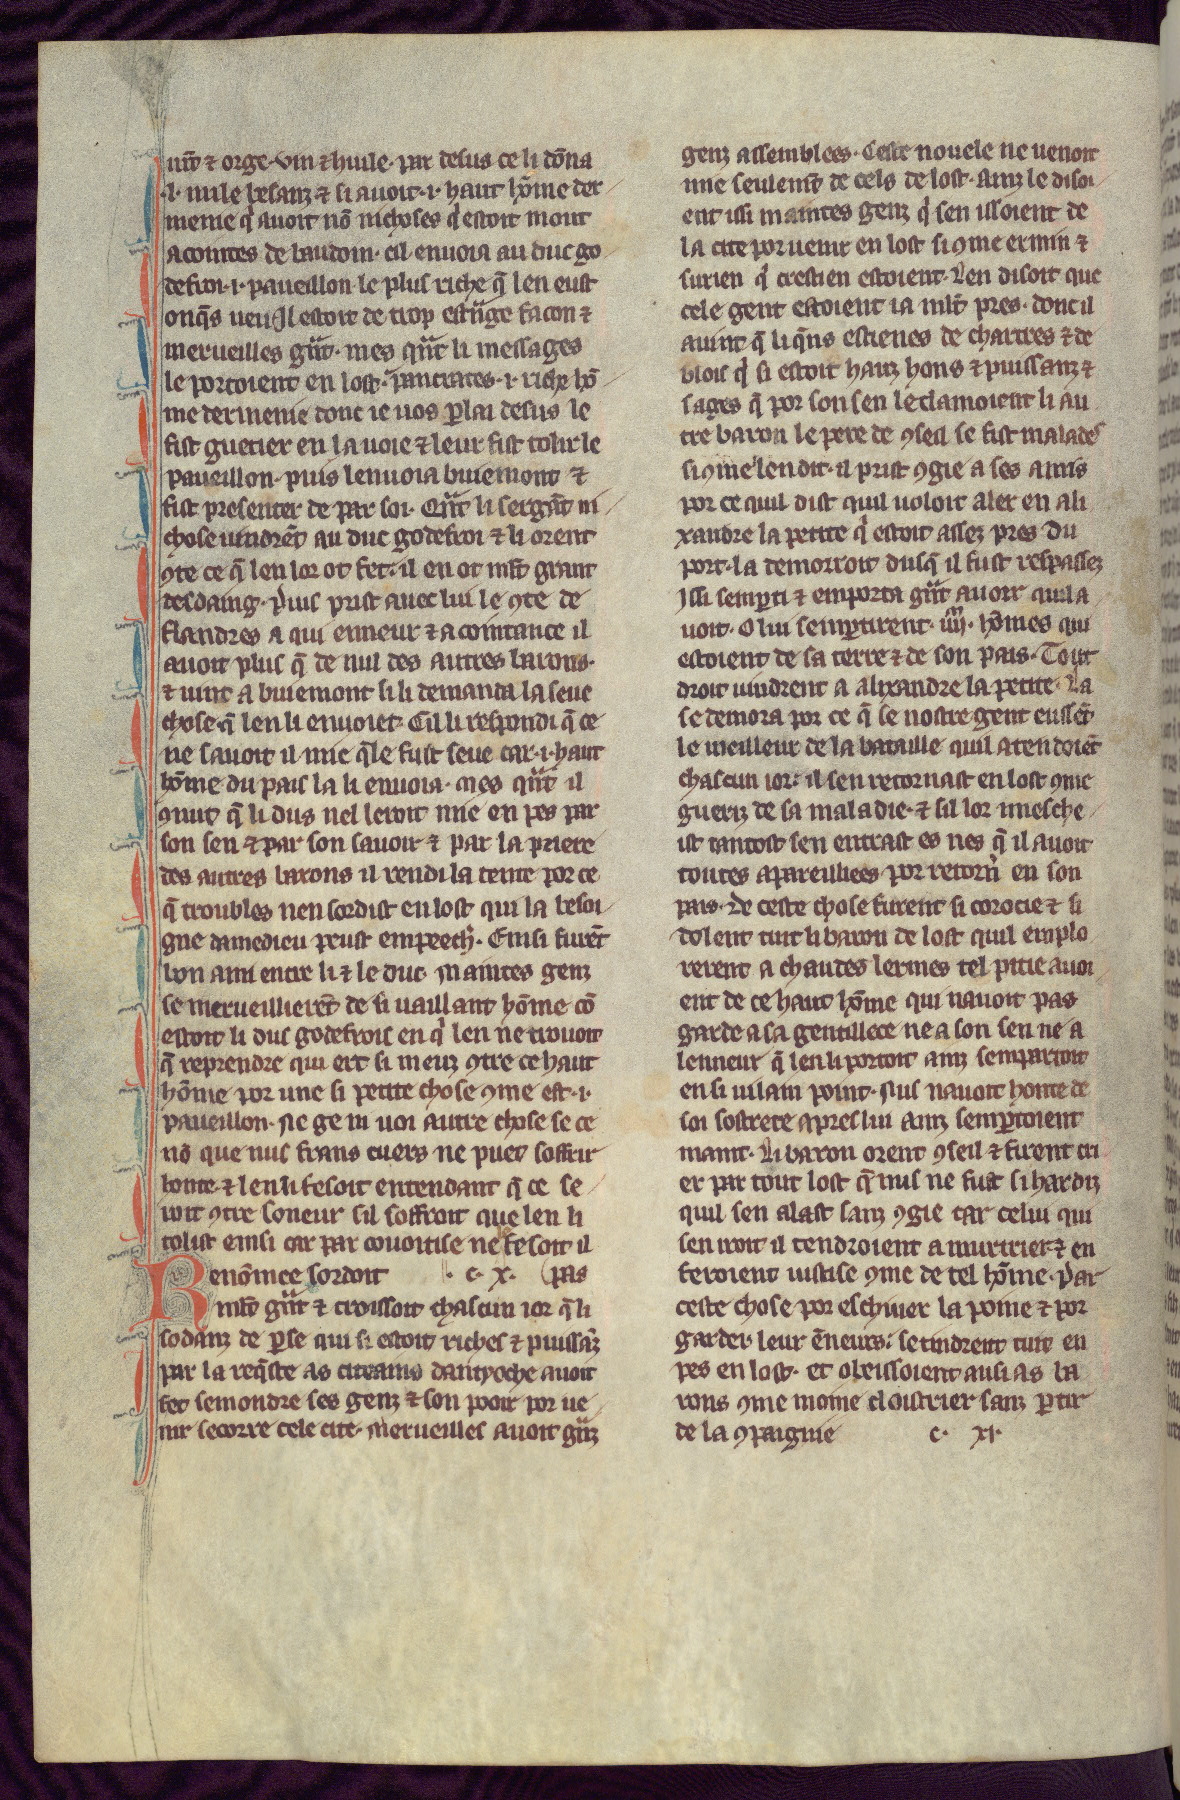 mt̃ ⁊ orge· vin ⁊ huile· par desus ce li dõna
·i· mile besanz ⁊ si auoit ·i· haut hõme der
menie q̇ auoit nõ nichoses q̇ estoit mout
acointes de baudoin· cil enuoia au duc go
defroi ·i· paueillon le plus riche q̃ len eust
onq̃s ueu Il estoit de trop estñge facon ⁊
merueilles gñt· mes qñt li messages
le portoient en lost· pancrates ·i· riche hõ
me dermenie dont ie uos ꝑlai desus le
fist guetier en la uoie ⁊ leur fist tolir le
paueillon· puis lenuoia buiemont ⁊
fist presenter de par soi· Qñt li sergãt ni
chose uindrẽt au duc godefroi ⁊ li orent
ꝯte ce q̃ len lor ot fet· il en ot ml̃t grant
desdaing· Puis prist auec lui le ꝯte de
flandres a qui enneur ⁊ acointance il
auoit plus q̃ de nul des autres barons·
⁊ uint a buiemont si li demanda la seue
chose q̃ len li enuoiet· Cil li respondi q̃ ce
ne sauoit il mie q̃le fust seue car ·i· haut
hõme du pais la li enuoia· mes qñt il
ꝯnut q̃ li dus nel leroit mie en pes par
son sen ⁊ par son sauoir ⁊ par la priere
des autres barons il rendi la tente por ce
q̃ troubles nen sordist en lost qui la besoi
gne damedieu peust empeech̃· Ensi furẽt
bon ami entre li ⁊ le duc· Maintes genz
se merueillierẽt de si uaillant hõme cõ
estoit li dus godefrois en q̇ len ne trouoit
q̃ reprendre qui ert si meuz ꝯtre ce haut
hõme por une si petite chose ꝯme est ·i·
paueillon· Ne ge ni uoi autre chose se ce
nõ que nus frans cuers ne puet soffrir
honte· ⁊ len li fesoit entendant q̃ ce se
roit ꝯtre soneur sil soffroit que len li
tolist einsi car par couoitise ne le fesoit il
Renõmee sordoit ·c· x· (pas
ml̃t gñt ⁊ croissoit chascun ior q̃ li
sodanz de ꝑse qui si estoit riches ⁊ puissãz
par la req̃ste as citeains dantyoche auoit
fet semondre ses genz ⁊ son pooir por ue
nir secorre cele cite· Merueilles auoit gñz
genz assemblees· Ceste nouele ne uenoit
mie seulem̃t de cels de lost· ainz le disoi
ent issi maintes genz q̇ sen issoient de
la cite por uenir en lost si ꝯme ermin ⁊
surien q̇ crestien estoient· Len disoit que
cele gent estoient ia ml̃t pres· donc il
auint q̃ li q̃ns estienes de chartres ⁊ de
blois q̇ si estoit hauz hons ⁊ puissanz ⁊
sages q̃ por son sen le clamoient li au
tre baron le pere de ꝯseil se fist malades
si ꝯme len dit· il prist ꝯgie a ses amis
por ce quil dist quil uoloit aler en ali
xandre la petite q̇ estoit assez pres du
port· la demorroit dusq̃ il fust respassez
Issi semꝑti ⁊ emporta gñt auoir quil a
uoit· O lui semꝑtirent ·iiij· hõmes qui
estoient de sa terre ⁊ de son pais· Tout
droit uindrent a alixandre la petite· La
se demora por ce q̃ se nostre gent eussẽt
le meilleur de la bataille quil atendoiẽt
chascun ior· il sen retornast en lost ꝯme
gueriz de sa maladie· ⁊ sil lor mesche
ist tantost sen entrast es nes q̃ il auoit
toutes apareilliees por retorñ en son
pais· De ceste chose furent si corocie ⁊ si
dolent tuit li baron de lost quil emplo
rerent a chaudes lermes tel pitie auoi
ent de ce haut hõme qui nauoit pas
garde a sa gentillece ne a son sen ne a
lenneur q̃ len li portoit ainz sempartoit
en si uilain point· Nus nauoit honte de
soi sostrere apres lui ainz semꝑtoient
maint· Li baron orent ꝯseil ⁊ firent cri
er par tout lost q̃ nus ne fust si hardiz
quil sen alast sanz ꝯgie car celui qui
sen iroit il tendroient a murtrier ⁊ en
feroient iustise ꝯme de tel hõme· Par
ceste chose por eschiuer la poine ⁊ por
garder leur ẽneurs· se tindrent tuit en
pes en lost· et obeissoient ausi as ba
rons ꝯme moine cloistrier sanz ꝑtir
de la ꝯpaignie c· xi·